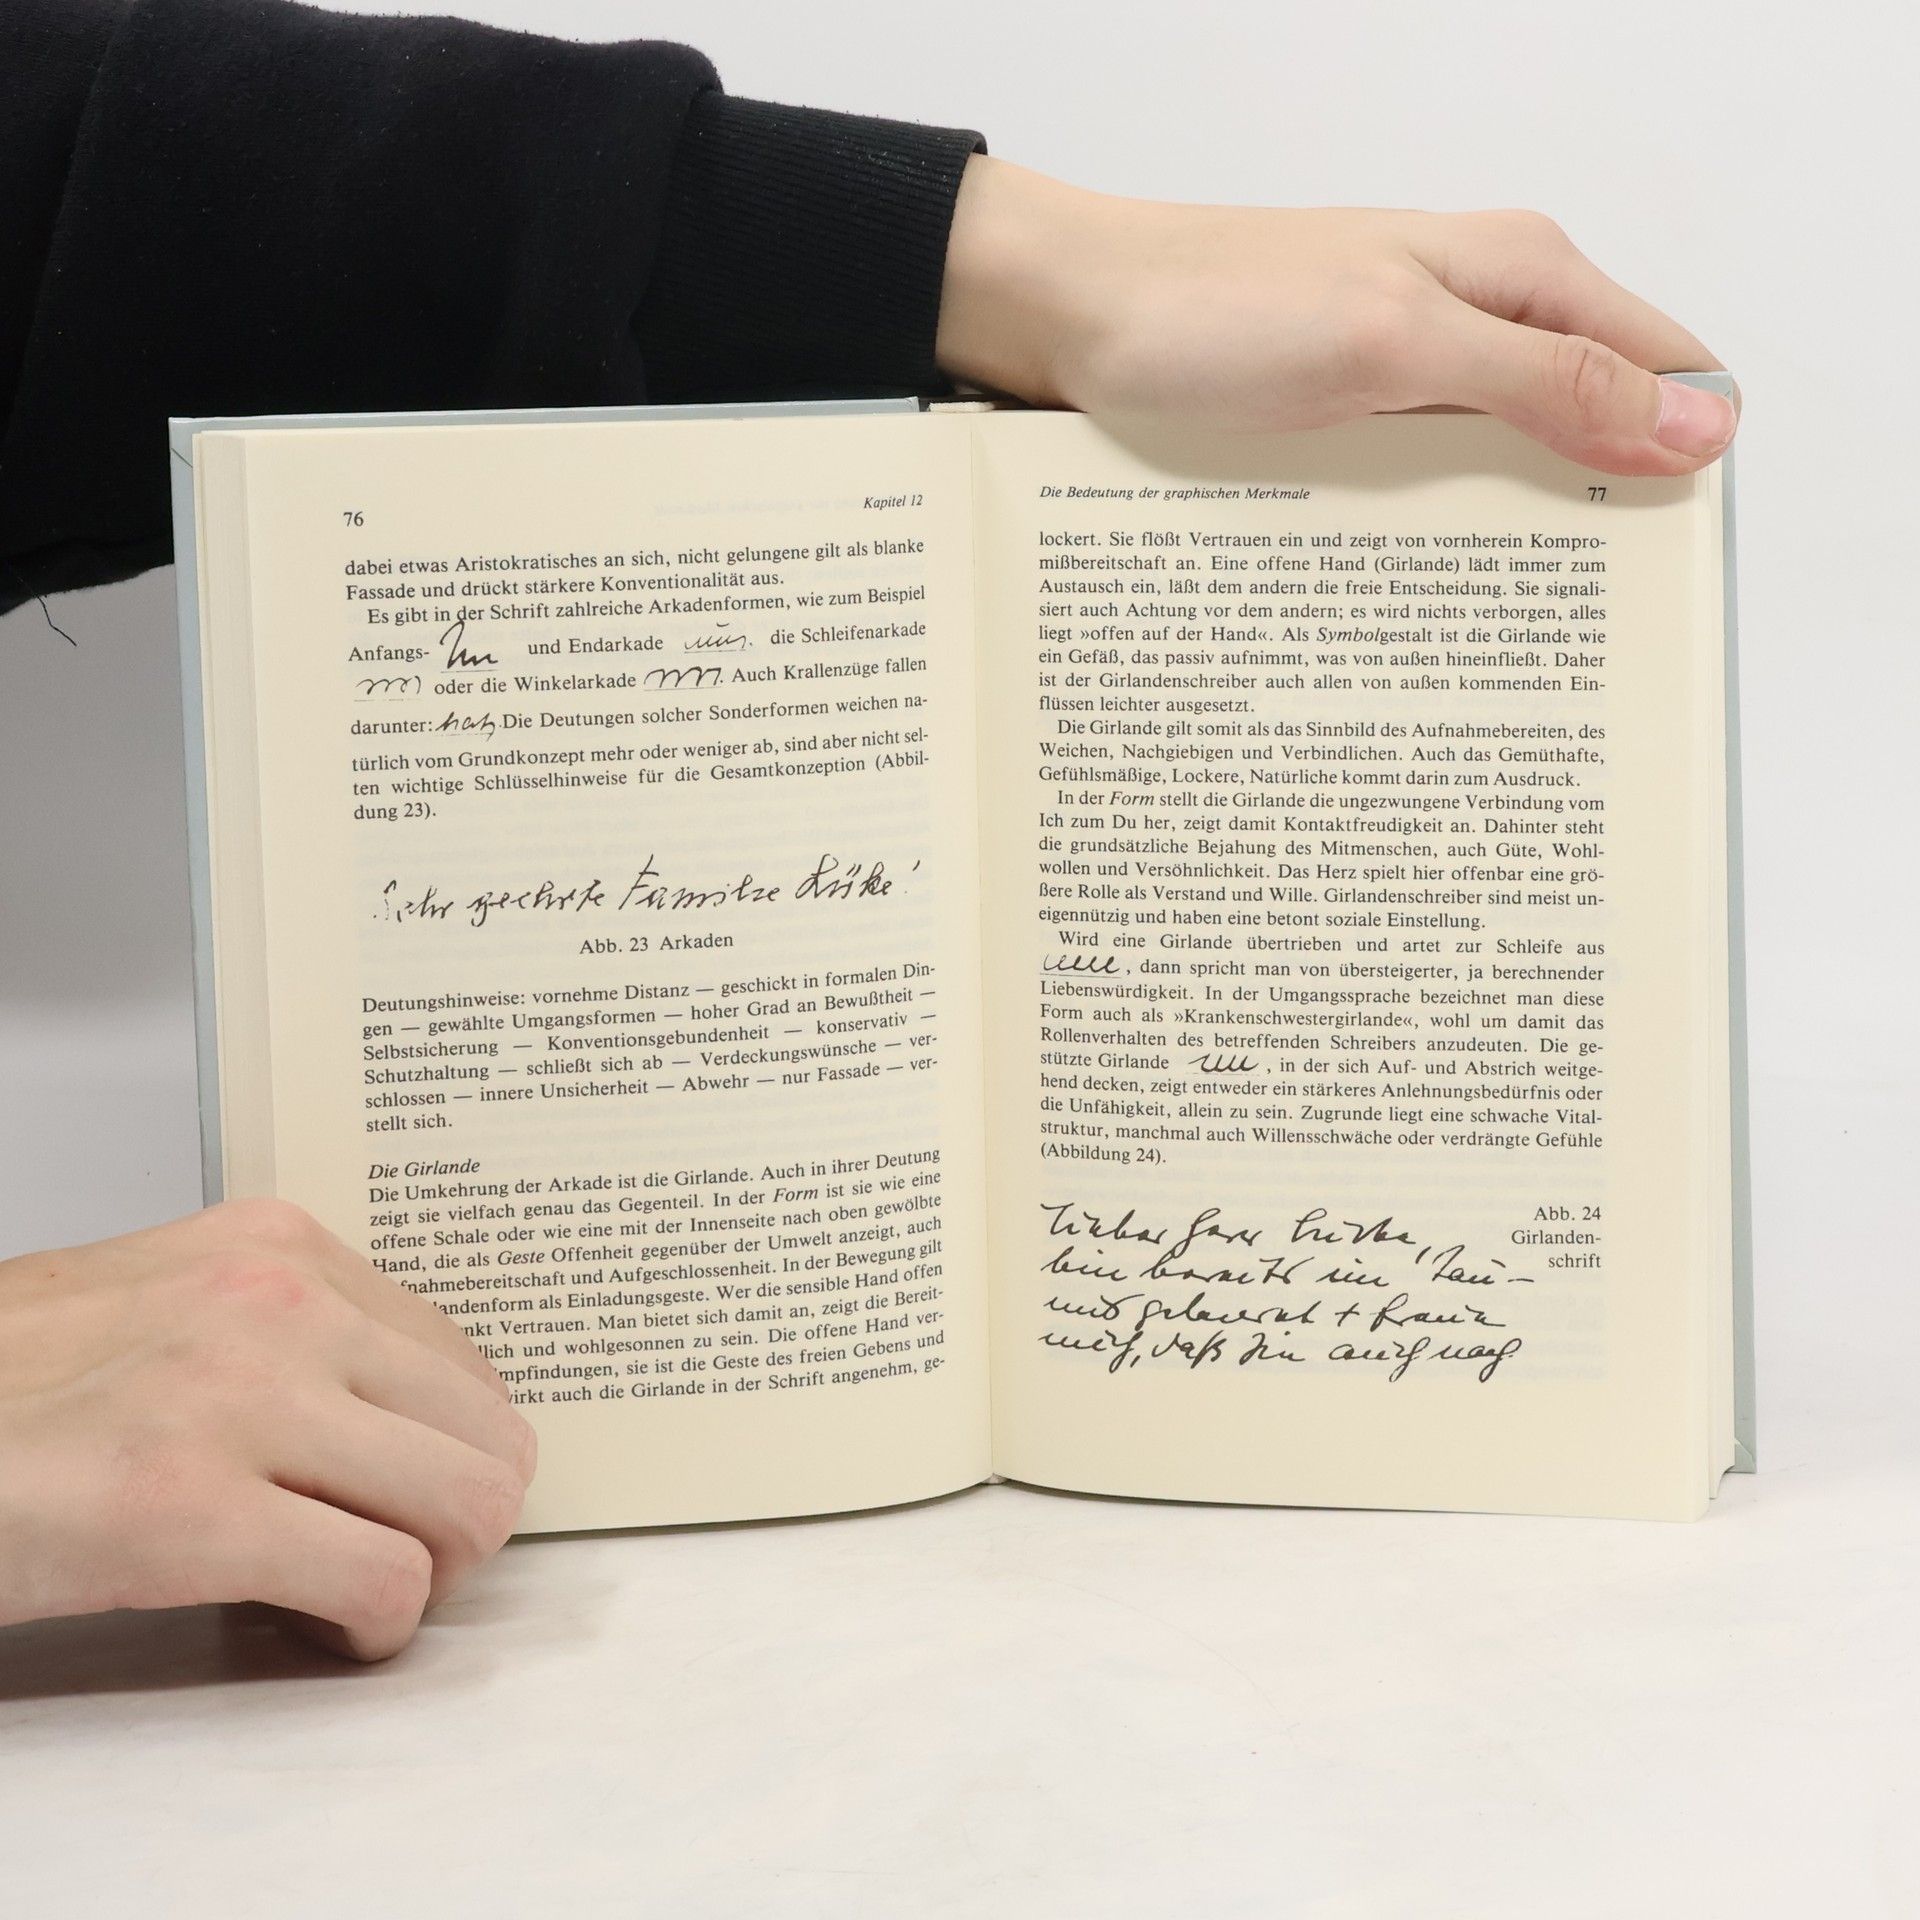 76
Kapitel 12
dabei etwas Aristokratisches an sich, nicht gelungene gilt als blanke
Fassade und drückt stärkere Konventionalität aus.
Es gibt in der Schrift zahlreiche Arkadenformen, wie zum Beispiel
Anfangs- und Endarkade die Schleifenarkade
oder die Winkelarkade . Auch Krallenzüge fallen
darunter: . Die Deutungen solcher Sonderformen weichen na-
türlich vom Grundkonzept mehr oder weniger ab, sind aber nicht sel-
ten wichtige Schlüsselhinweise für die Gesamtkonzeption (Abbil-
dung 23).
Sehr geehrte Familie Lüke!
Abb. 23 Arkaden
Deutungshinweise: vornehme Distanz — geschickt in formalen Din-
gen — gewählte Umgangsformen — hoher Grad an Bewußtheit —
Selbstsicherung — Konventionsgebundenheit — konservativ —
Schutzhaltung — schließt sich ab — Verdeckungswünsche — ver-
schlossen — innere Unsicherheit — Abwehr — nur Fassade — ver-
stellt sich.
Die Girlande
Die Umkehrung der Arkade ist die Girlande. Auch in ihrer Deutung
zeigt sie vielfach genau das Gegenteil. In der Form ist sie wie eine
offene Schale oder wie eine mit der Innenseite nach oben gewölbte
Hand, die als Geste Offenheit gegenüber der Umwelt anzeigt, auch
fnahmebereitschaft und Aufgeschlossenheit. In der Bewegung gilt
landenform als Einladungsgeste. Wer die sensible Hand offen
nkt Vertrauen. Man bietet sich damit an, zeigt die Bereit-
llich und wohlgesonnen zu sein. Die offene Hand ver-
mpfindungen, sie ist die Geste des freien Gebens und
wirkt auch die Girlande in der Schrift angenehm, ge-
Die Bedeutung der graphischen Merkmale
77
lockert. Sie flößt Vertrauen ein und zeigt von vornherein Kompro-
mißbereitschaft an. Eine offene Hand (Girlande) lädt immer zum
Austausch ein, läßt dem andern die freie Entscheidung. Sie signali-
siert auch Achtung vor dem andern; es wird nichts verborgen, alles
liegt »offen auf der Hand«. Als Symbolgestalt ist die Girlande wie
ein Gefäß, das passiv aufnimmt, was von außen hineinfließt. Daher
ist der Girlandenschreiber auch allen von außen kommenden Ein-
flüssen leichter ausgesetzt.
Die Girlande gilt somit als das Sinnbild des Aufnahmebereiten, des
Weichen, Nachgiebigen und Verbindlichen. Auch das Gemüthafte,
Gefühlsmäßige, Lockere, Natürliche kommt darin zum Ausdruck.
In der Form stellt die Girlande die ungezwungene Verbindung vom
Ich zum Du her, zeigt damit Kontaktfreudigkeit an. Dahinter steht
die grundsätzliche Bejahung des Mitmenschen, auch Güte, Wohl-
wollen und Versöhnlichkeit. Das Herz spielt hier offenbar eine grö-
ßere Rolle als Verstand und Wille. Girlandenschreiber sind meist un-
eigennützig und haben eine betont soziale Einstellung.
Wird eine Girlande übertrieben und artet zur Schleife aus
, dann spricht man von übersteigerter, ja berechnender
Liebenswürdigkeit. In der Umgangssprache bezeichnet man diese
Form auch als »Krankenschwestergirlande«, wohl um damit das
Rollenverhalten des betreffenden Schreibers anzudeuten. Die ge-
stützte Girlande , in der sich Auf- und Abstrich weitge-
hend decken, zeigt entweder ein stärkeres Anlehnungsbedürfnis oder
die Unfähigkeit, allein zu sein. Zugrunde liegt eine schwache Vital-
struktur, manchmal auch Willensschwäche oder verdrängte Gefühle
(Abbildung 24).
Abb. 24
Girlanden-
schrift
Lieber Herr
bin bereits im Tau-
nus + freue
mich, daß Sie auch nach